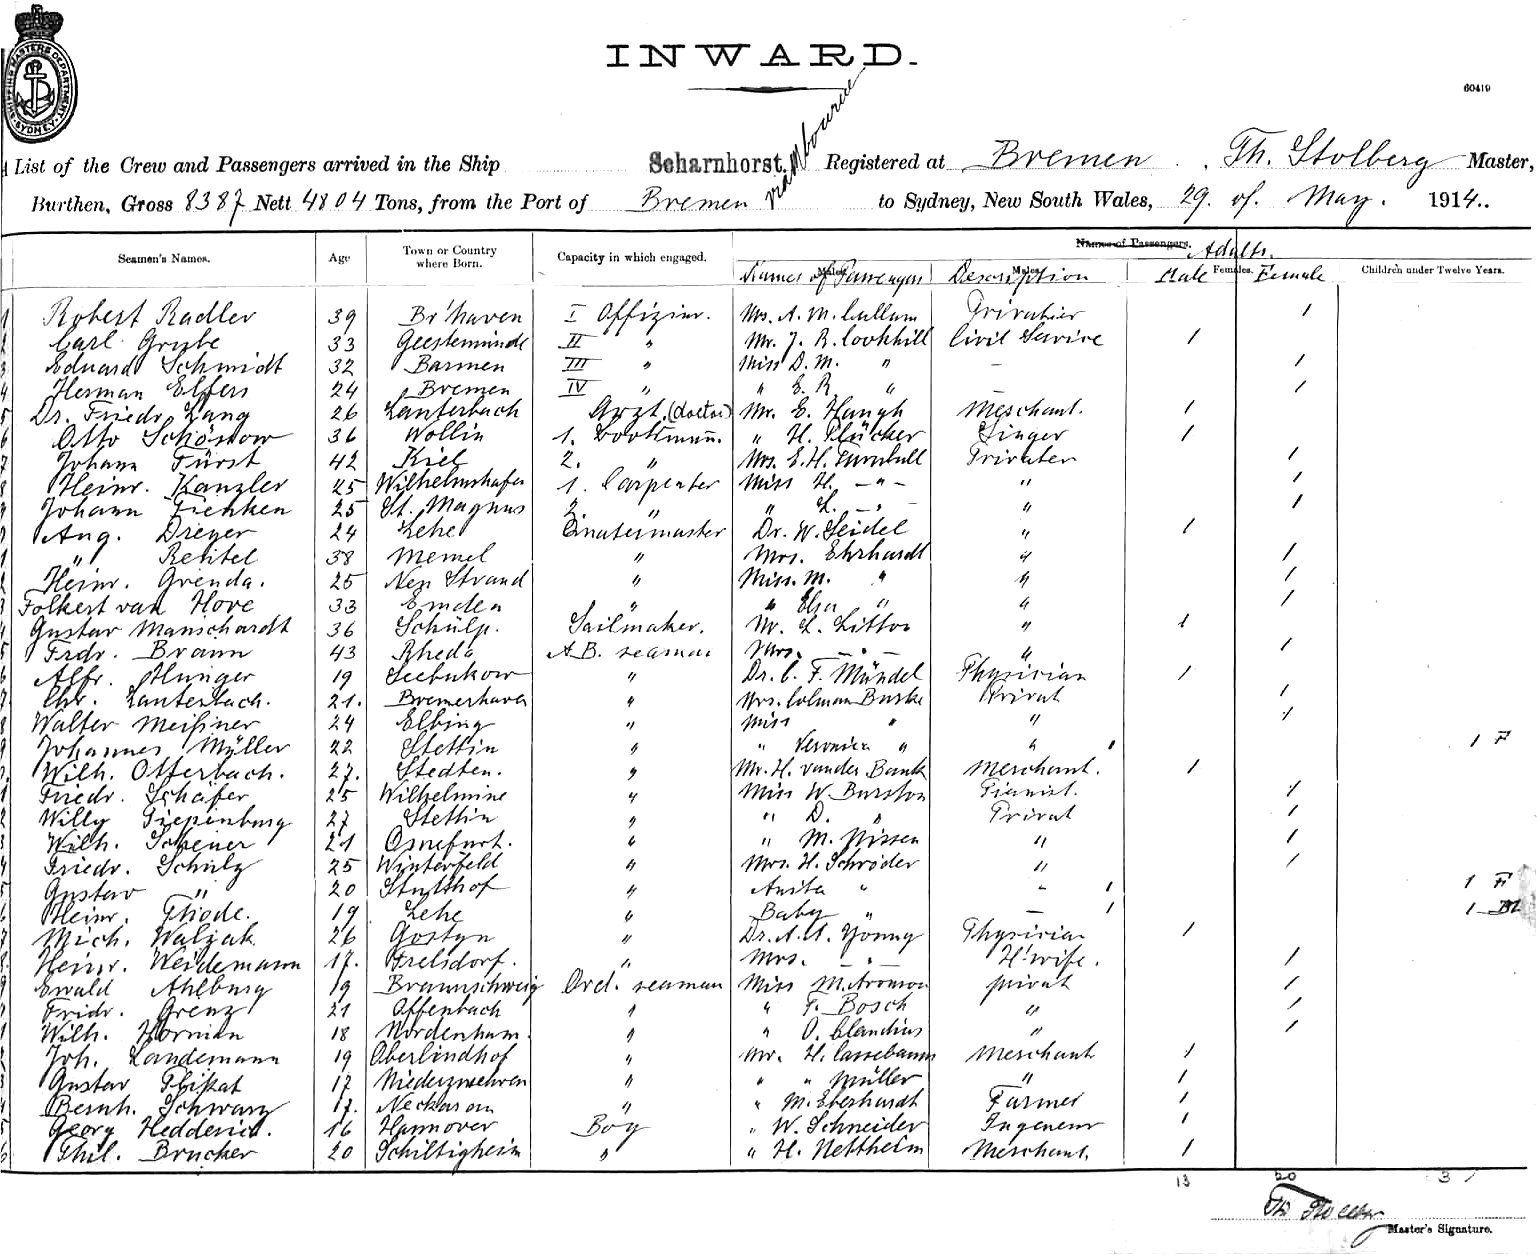 SHIPPING MASTERS DEPARTMENT
SYDNEY
INWARD.
60419
List of the Crew and Passengers arrived in the Ship Scharnhorst. via Melbourne Registered at Bremen. Th. Stolberg Master,
Burthen, Gross 8387 Nett 4804 Tons, from the Port of Bremen to Sydney, New South Wales, 29. of. May. 1914..
Seamen's Names. Age Town or Country where Born. Capacity in which engaged. Names of Passengers. Adults.
Names of Passengers Males. Description Males. Male Females. Female Children under Twelve Years.
1 Robert Radler 39 Br'haven I Offizier. Mrs. A. M. Callum Privatier 1
2 Carl Grube 33 Geestemünde II " Mr. J. R. Cookhill Civil Service 1
3 Eduard Schmidt 32 Barmen III " Miss D. M. " – 1
4 Herman Elfers 24 Bremen IV " " E. R. " – 1
5 Dr. Friedr. Lang 26 Lauterbach Arzt. (doctor) Mr. E. Haugh Merchant. 1
6 Otto 36 Wollin 1. Bootsmann. " H. Plücker Singer 1
7 Johann Fürst 42 Kiel 2. " Mrs. E. H. Turnbull Privatier 1
8 Heinr. Kanzler 25 Wilhelmshafen 1. Carpenter Miss H. – " – " 1
9 Johann 25 St. Magnus 2. " " L. – " – " 1
0 Aug. Dreyer 24 Lehe Quatermaster Dr. W. Seidel " 1
1 " 38 Memel " Mrs. Ehrhardt " 1
2 Heinr. Grenda. 25 Neu Strand " Miss. M. " " 1
3 Folkert van Hove 33 Emden " " Elsa " " 1
4 Gustav Manschardt 36 Schülp. Sailmaker. Mr. L. Litton " 1
5 Frdr. Braun 43 Rheda A.B. seaman Mrs. – " – " 1
6 Alfr. Hunger 19 " Dr. C. F. Mündel Physician 1
7 Chr. Lauterbach. 21. Bremerhaven " Mrs. Colman Burke Privat 1
8 Walter Meißner 24 Elbing " Miss " " 1
9 Johannes Müller 22 Stettin " " Veronica " " 1 F
0 Wilh. Otterbach. 27. Stedten. " Mr. H. van der Bank Merchant. 1
1 Friedr. Schäfer 25 Wilhelmine " Miss W. Burston Pianist. 1
2 Willy Piepenburg 27 Stettin " " D. " Privat 1
3 Wilh. Scheuer 21 " " M. Nissen " 1
4 Friedr. Schulz 25 Winterfeld " Mrs. H. Schröder " 1
5 Gustav " 20 Stutthof " Anita " " 1 1 F
6 Heinr. Thode. 19 Lehe " Baby " – 1 1 M
7 Mich. Walzak 26 Gostyn " Dr. A. A. Young Physician 1
8 Heinr. Weidemann 17. Frelsdorf. " Mrs. – " – H'wife. 1
9 Ewald Ahlburg 19 Braunschweig Ord. seaman Miss M. Aronson privat 1
0 Fridr. Grenz 21 Offenbach " " F. Bosch " 1
1 Wilh. Horman 18 Nordenham. " " O. Claudius " 1
2 Joh. Landemann 19 Oberlindhof " Mr. H. Cassebaum Merchant 1
3 Gustav 17 Niederzwehren " " " Müller " 1
4 Bernh. Schwarz 17. Neckarau " " M. Eberhardt Farmer 1
5 Georg Hedderich. 16 Hannover Boy " W. Schneider Ingeneur 1
6 Phil. Brucker 20 Schiltigheim " " H. Nettheim Merchant. 1
13 20 3
Th Stolberg
Master's Signature.